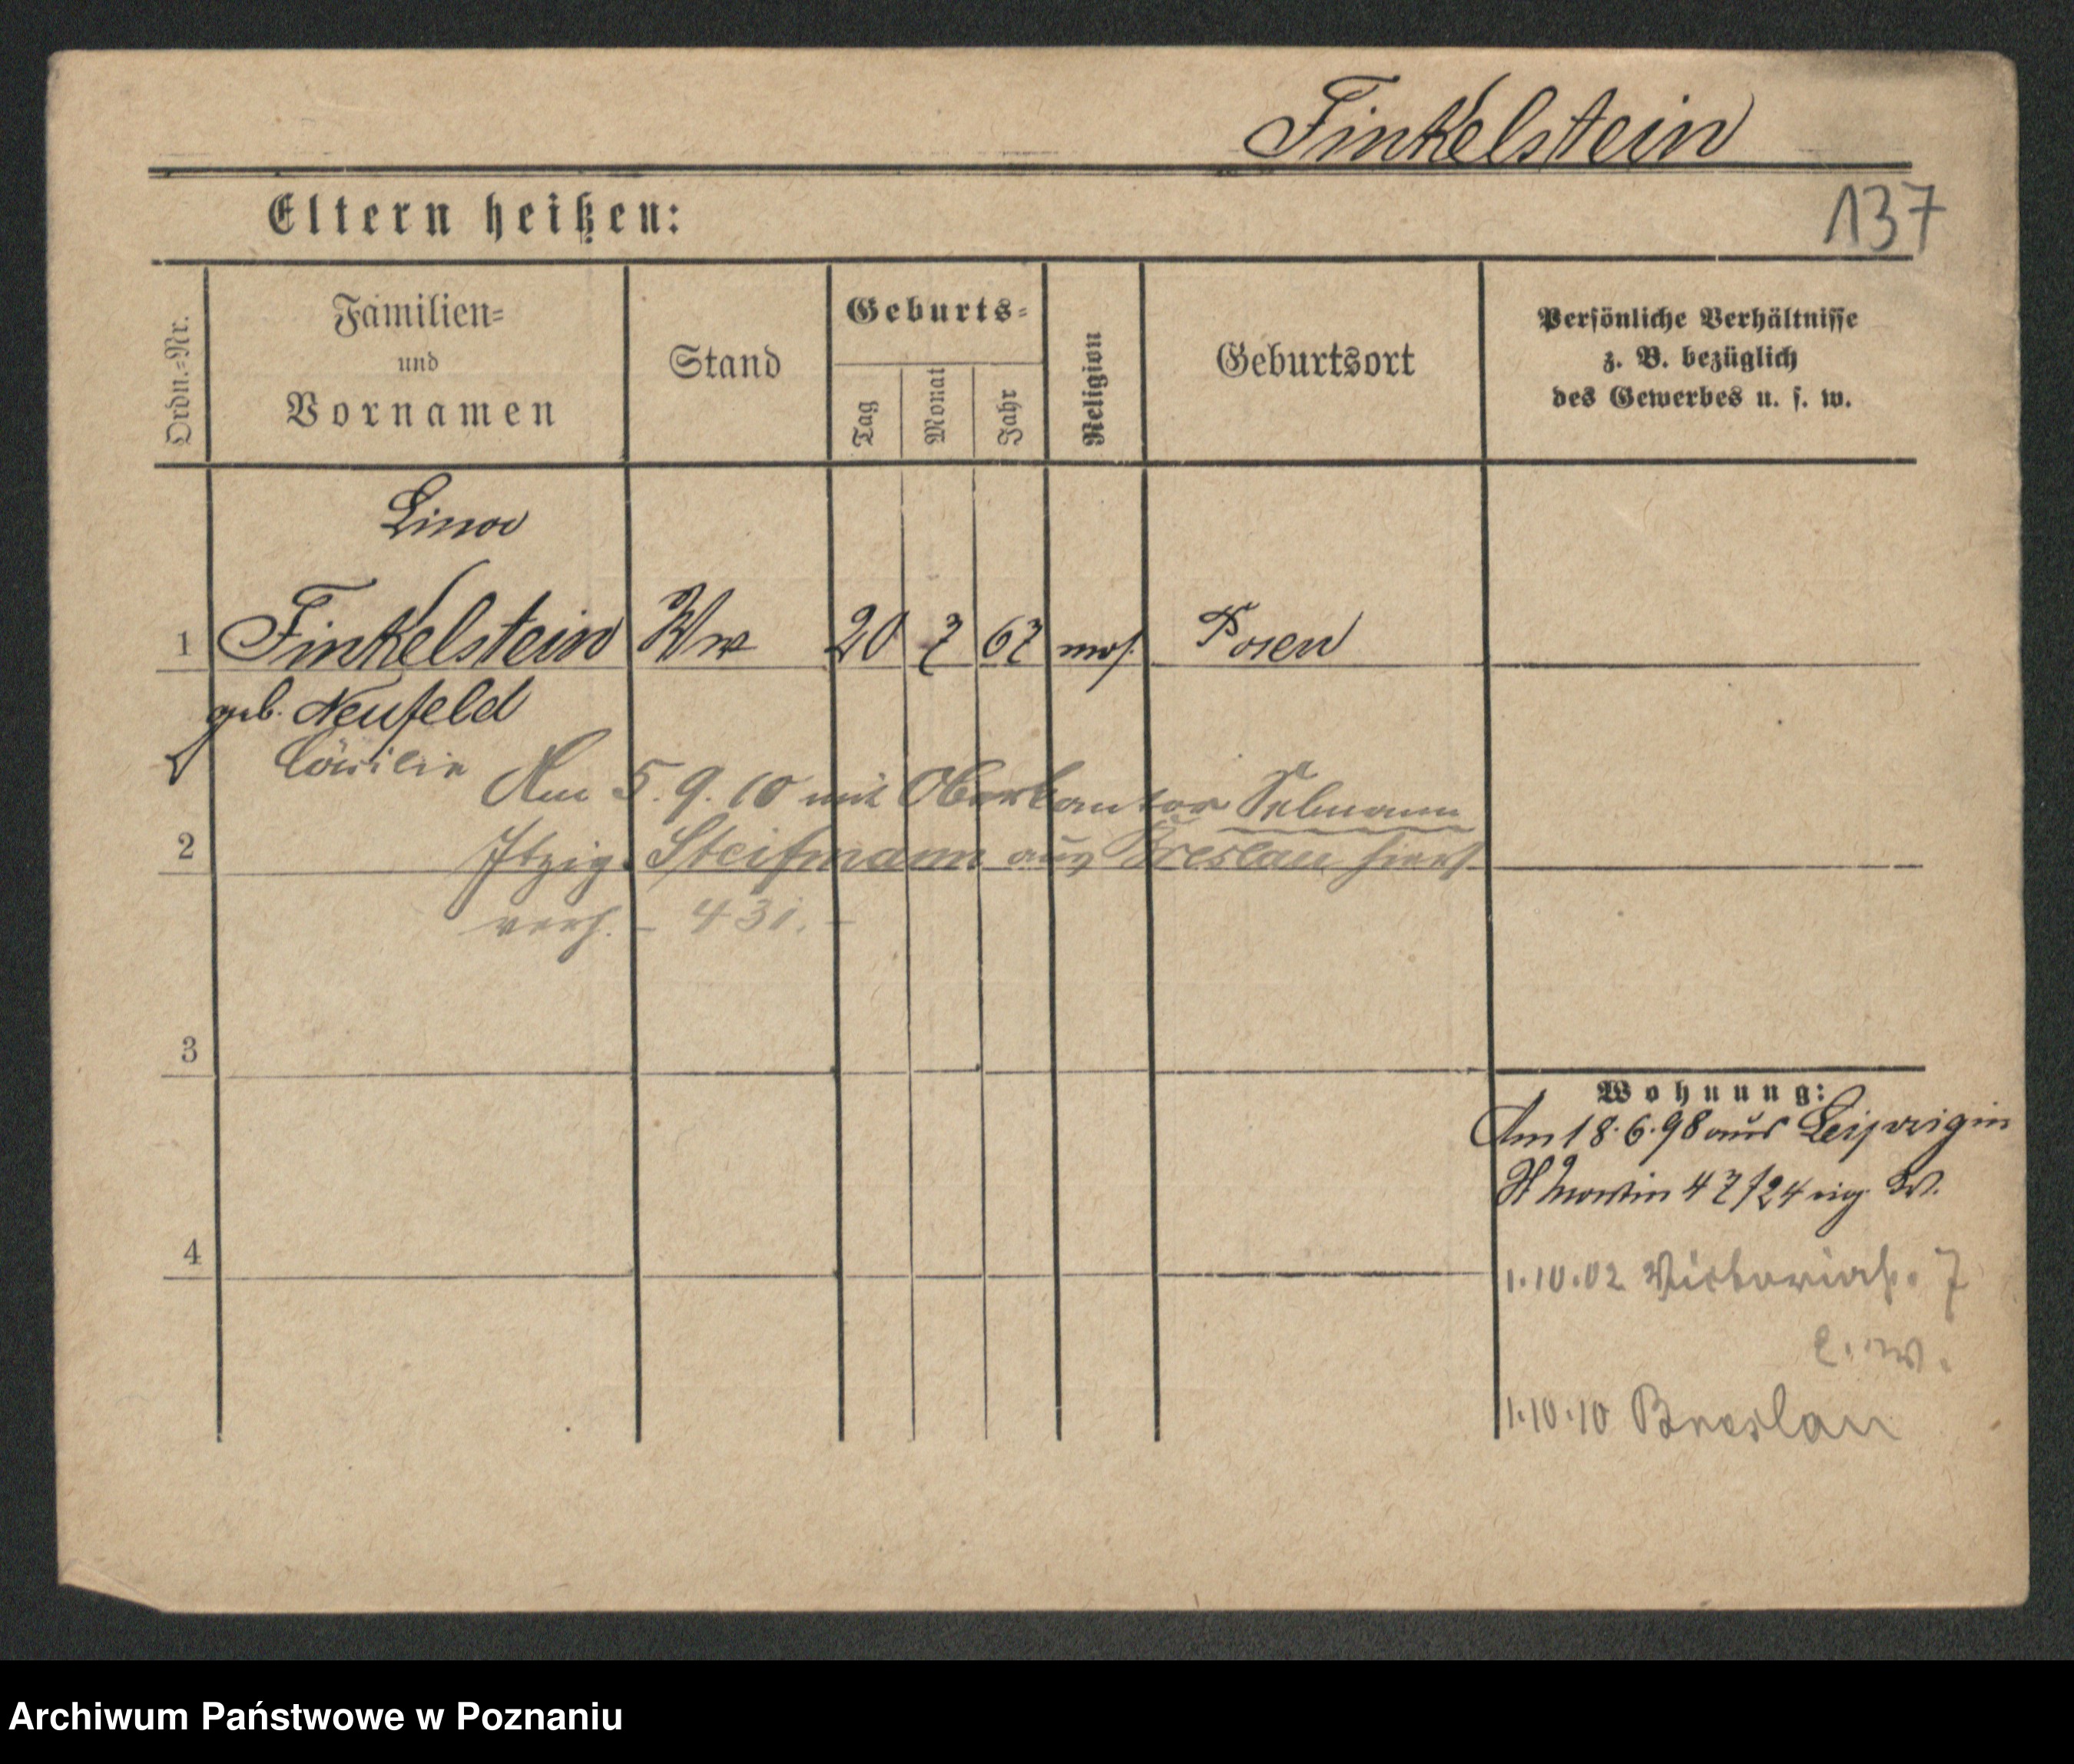 Finkelstein
137
Eltern heißen:
Ordn.=Nr.
Familien=
und
Vornamen
Stand
Geburts=
Tag
Monat
Jahr
Religion
Geburtsort
Persönliche Verhältnisse
z. B. bezüglich
des Gewerbes u. s. w.
Lina
1 Finkelstein Ww 20 7 67 mos. Posen
geb. Neufeld
Cäcilie
Am 5.9.10 mit Oberkantor
2 Itzig Steifmann aus Breslau hiers.
verh. - 431. -
3
Wohnung:
Am 18.6.98 aus Leipzig in
St Martin 47/24 eig. W.
4
1.10.02 Victoriastr. 7
e. W.
1.10.10 Breslau
Archiwum Państwowe w Poznaniu